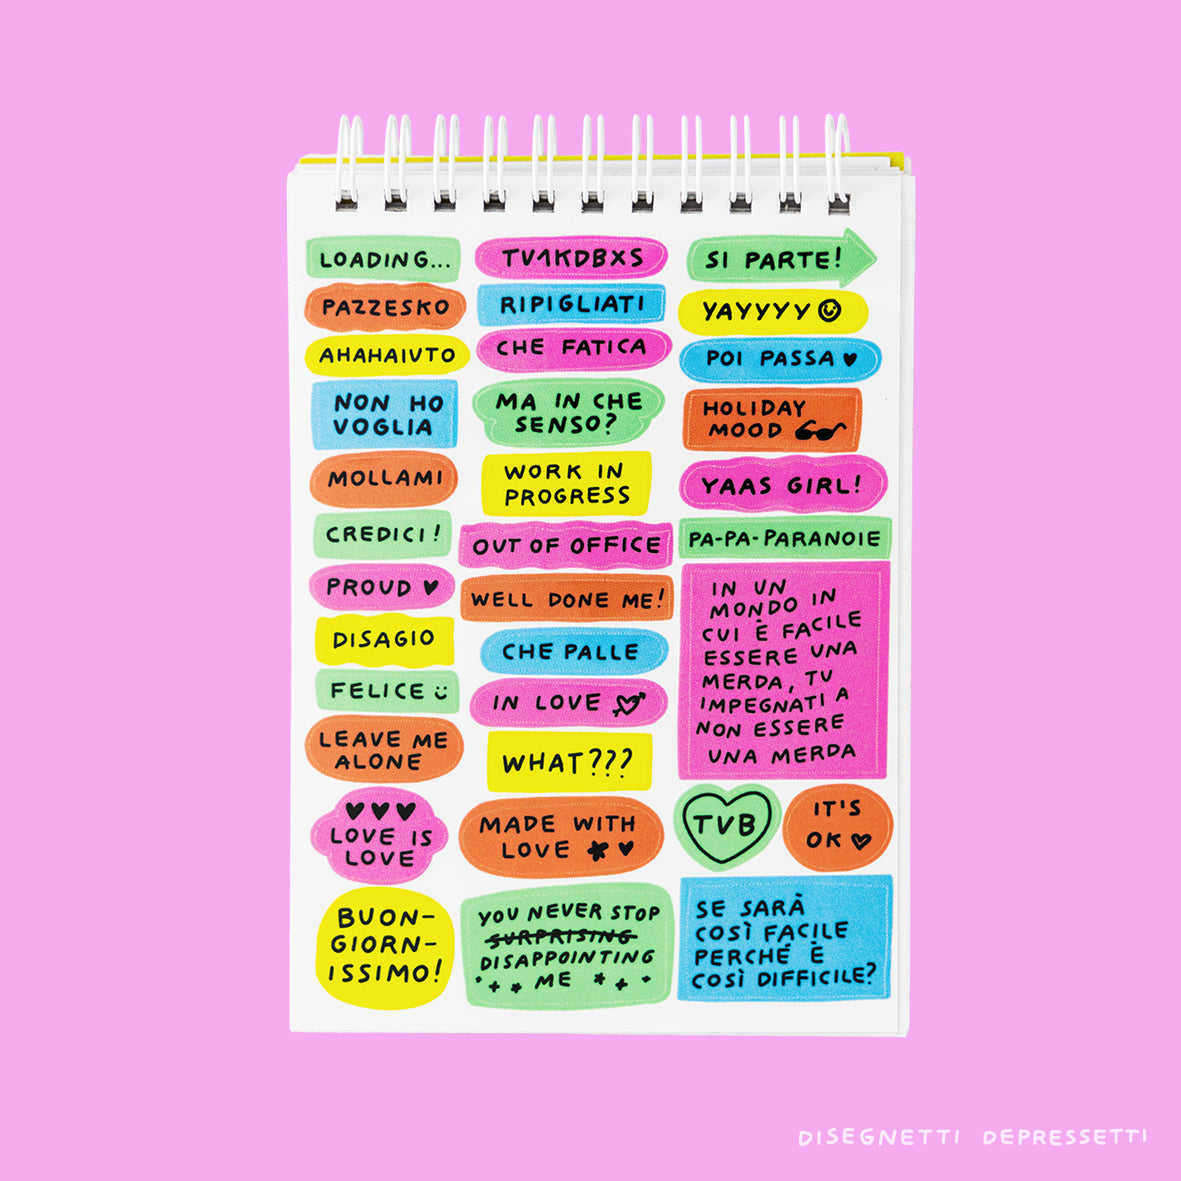 LOADING...
PAZZESKO
AHAHAIUTO
NON HO
VOGLIA
MOLLAMI
CREDICI!
PROUD
DISAGIO
FELICE
LEAVE ME
ALONE
LOVE IS
LOVE
BUON-
GIORN-
ISSIMO!
TV1KDBXS
RIPIGLIATI
CHE FATICA
MA IN CHE
SENSO?
WORK IN
PROGRESS
OUT OF OFFICE
WELL DONE ME!
CHE PALLE
IN LOVE
WHAT???
MADE WITH
LOVE
YOU NEVER STOP
SURPRISING
DISAPPOINTING
ME
SI PARTE!
YAYYYY
POI PASSA
HOLIDAY
MOOD
YAAS GIRL!
PA-PA-PARANOIE
IN UN
MONDO IN
CUI È FACILE
ESSERE UNA
MERDA, TU
IMPEGNATI A
NON ESSERE
UNA MERDA
TVB
IT'S
OK
SE SARÀ
COSÌ FACILE
PERCHÉ È
COSÌ DIFFICILE?
DISEGNETTI DEPRESSETTI